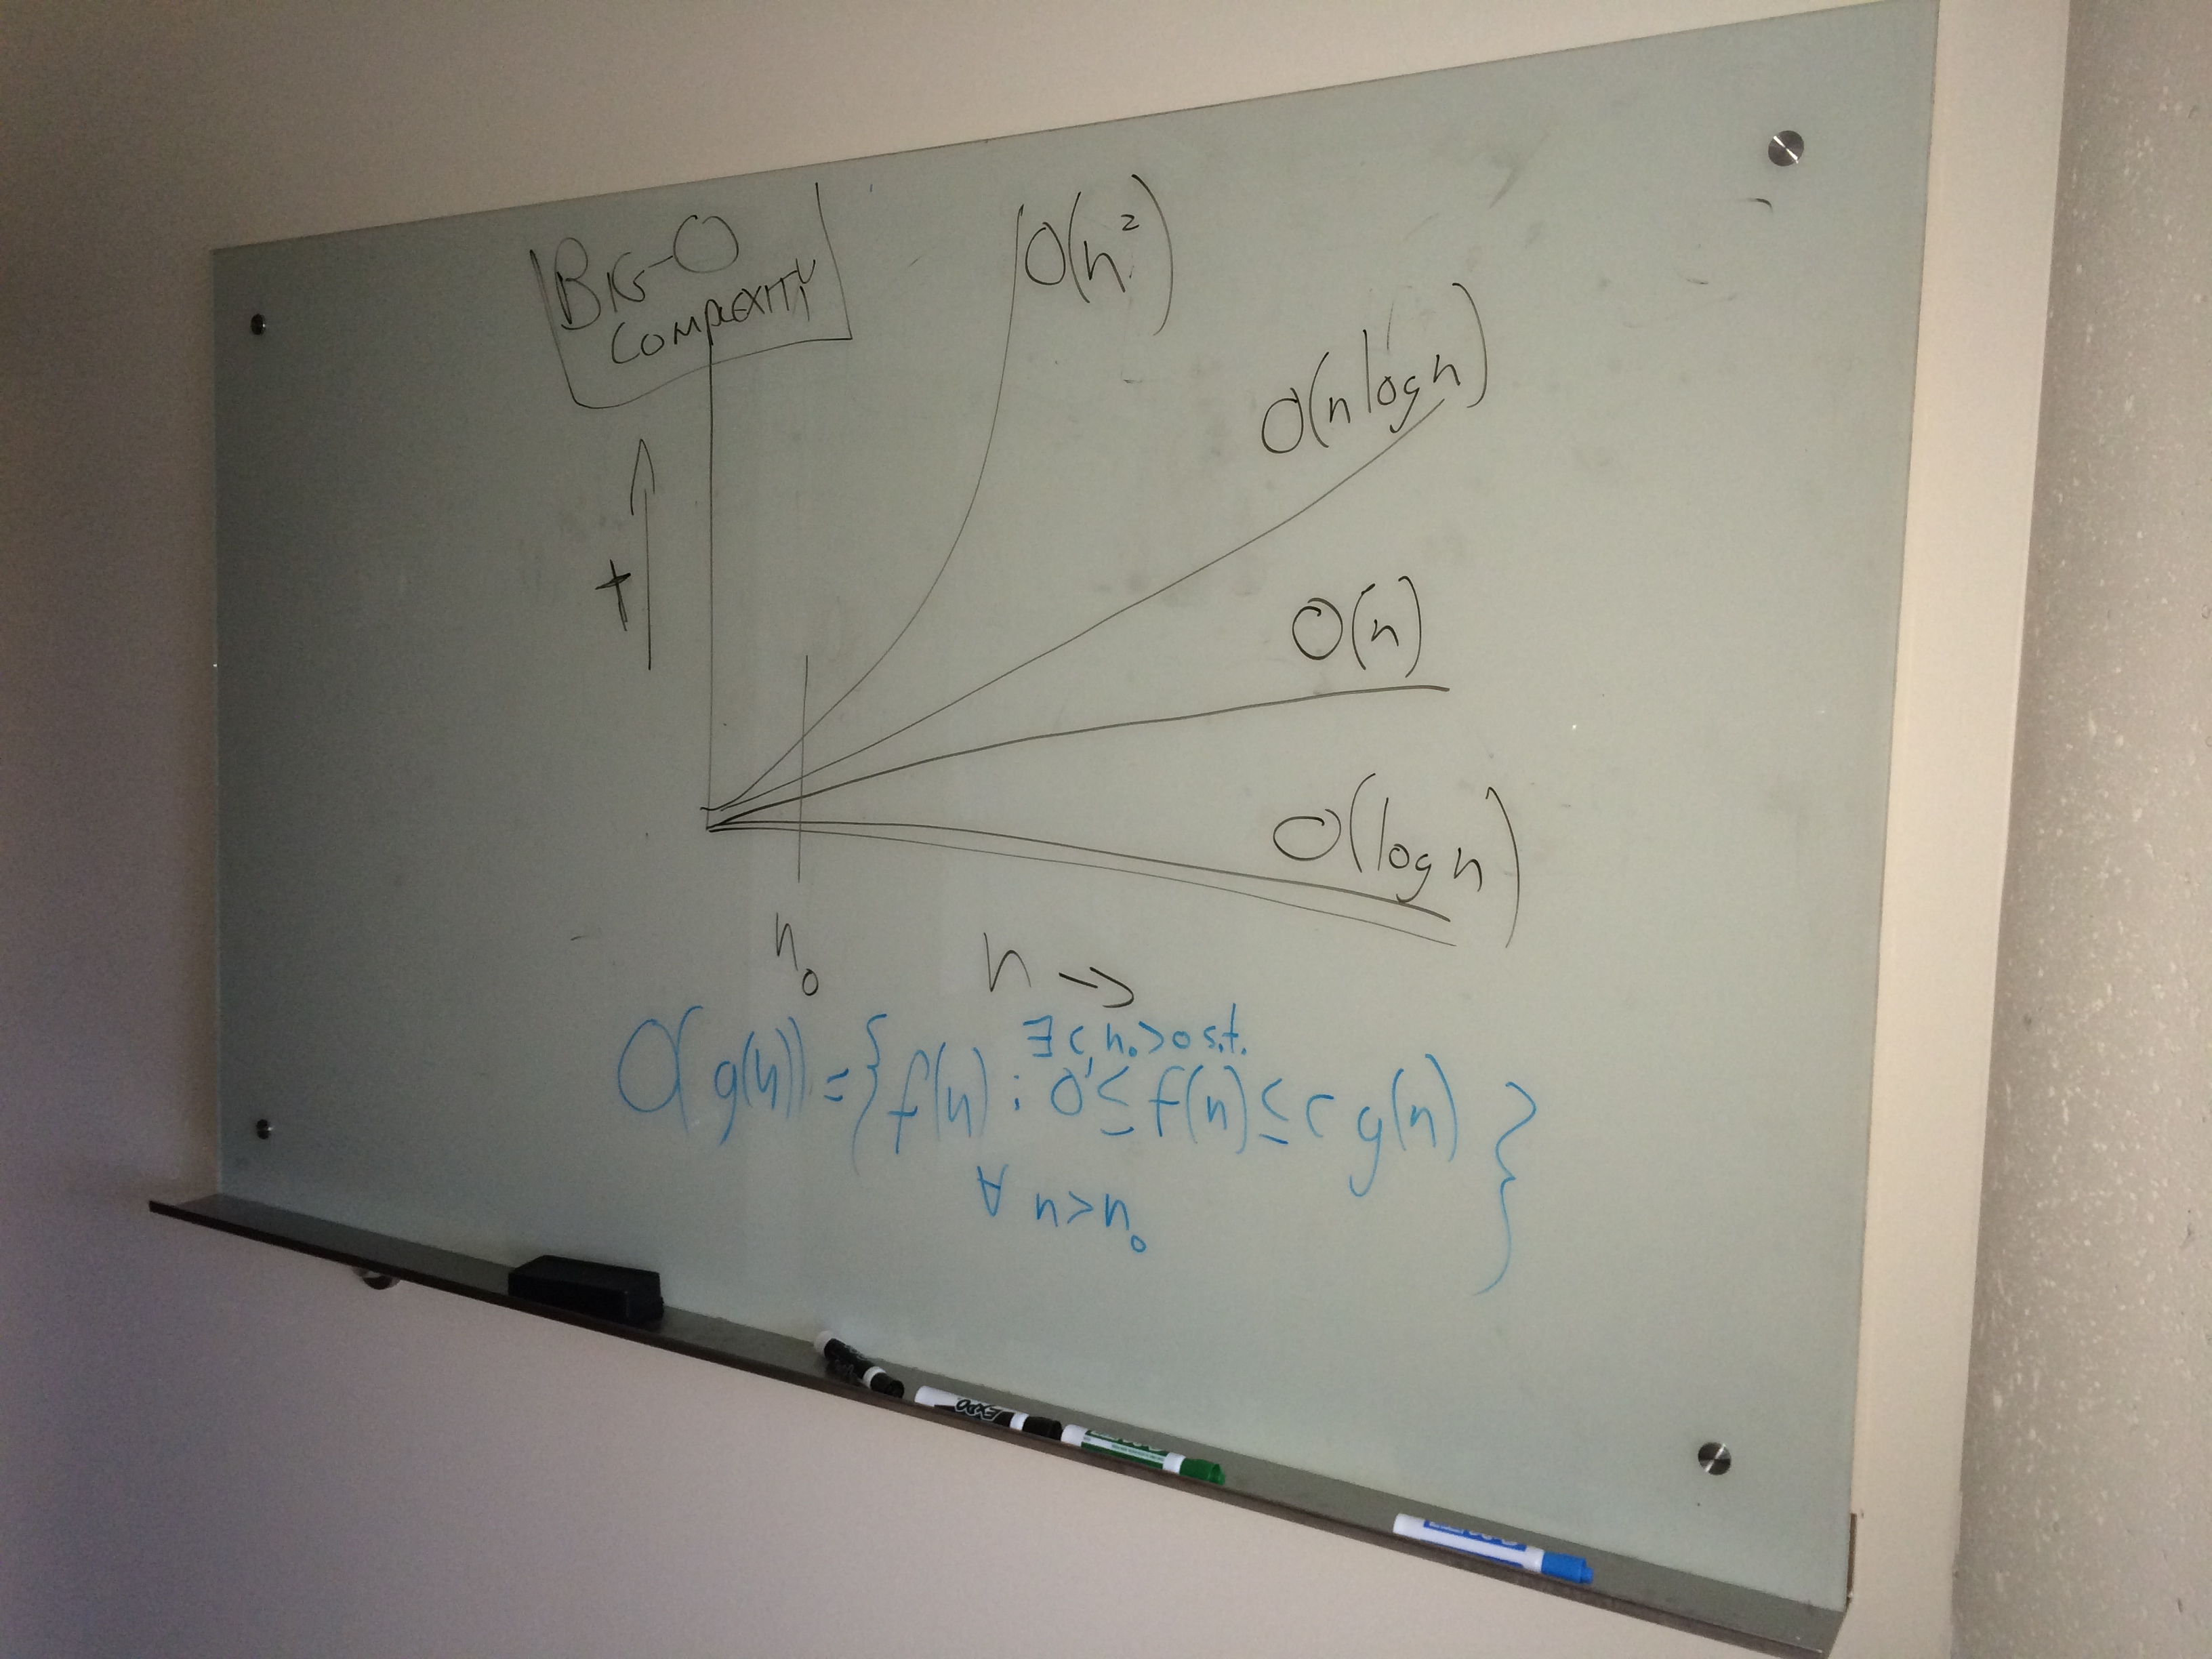 BIG-O
COMPLEXITY
O(n²)
O(n log n)
t
O(n)
O(log n)
n₀
n →
∃ c, n₀ > 0 s.t.
O(g(n)) = { f(n) : 0 ≤ f(n) ≤ c g(n) }
∀ n > n₀
EXPO